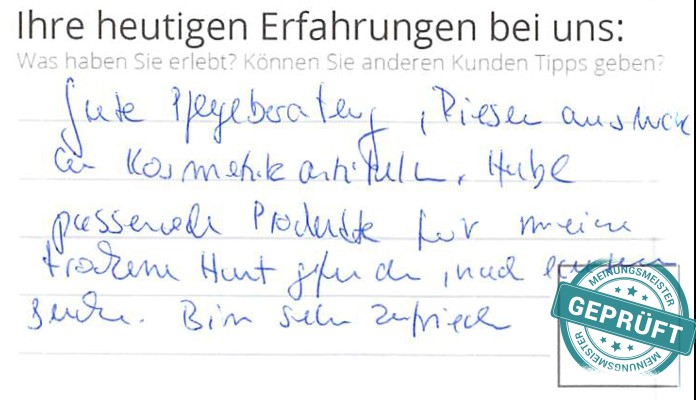 Ihre heutigen Erfahrungen bei uns:
Was haben Sie erlebt? Können Sie anderen Kunden Tipps geben?
Gute Pflegeberatung, Riesen auswahl
an Kosmetikartikeln. Habe
passende Produkte für meine
trockene Haut gefunden, nach
Suche. Bin sehr zufrieden
MEINUNGSMEISTER
GEPRÜFT
MEINUNGSMEISTER